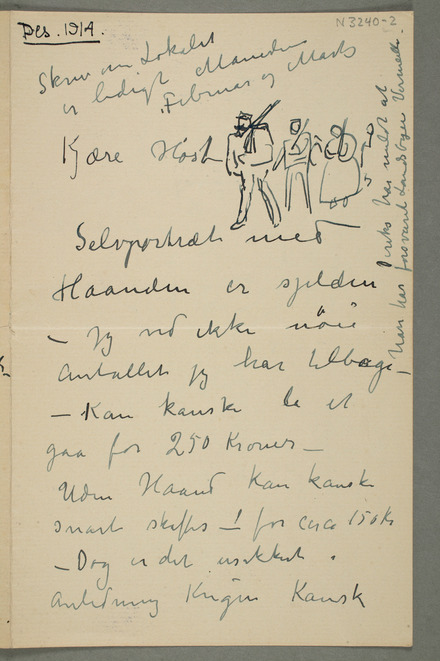 Des. 1914.
N 3240-2
Skriv om Lokalet
er ledigt Maaneden
Februar og Marts
Kjære Høst
Selvportræt med
Haanden er sjelden
– Jeg ved ikke nøie
Antallet jeg har tilbage –
– Kan kanske la et
gaa for 250 Kroner –
Uden Haand kan kanske
snart skaffes – ! for circa 150 Kr
– Dog er det usikkert i
Anledning Krigen Kansk
har meldt at
han har forsvaret Landsbyen